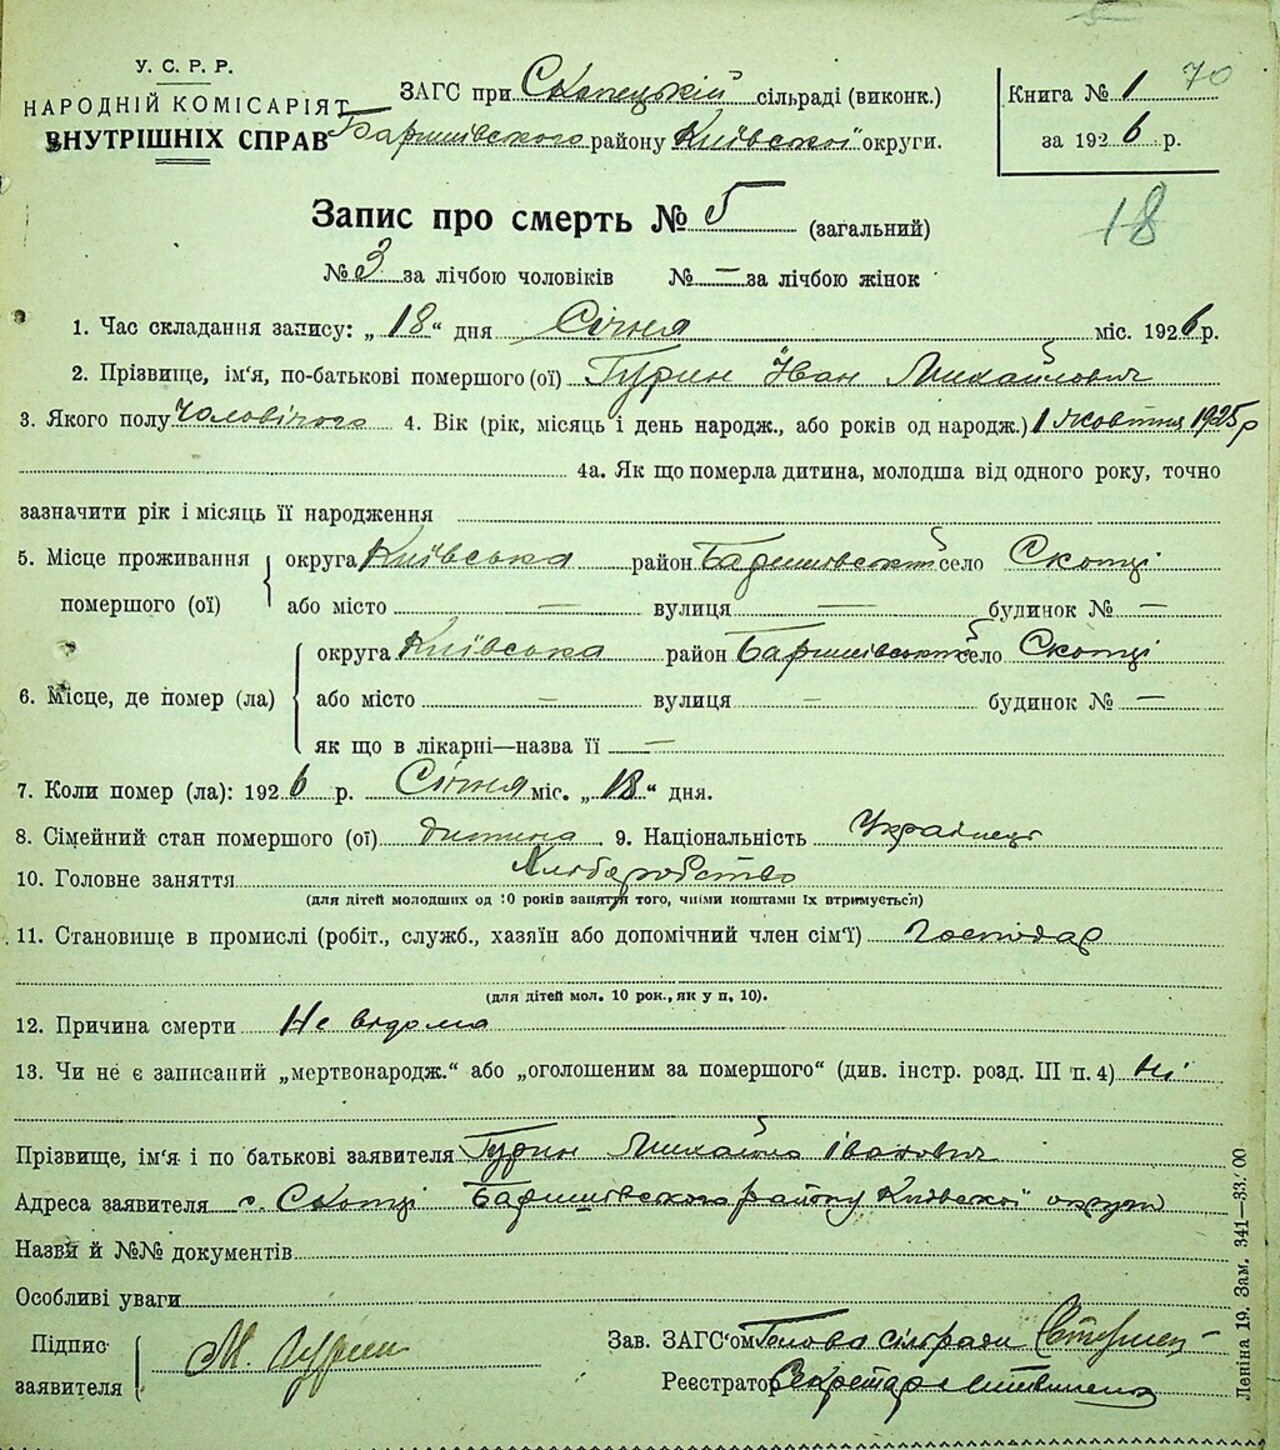 У. С. Р. Р.
НАРОДНІЙ КОМІСАРІЯТ
ВНУТРІШНІХ СПРАВ
ЗАГС при Скопецькій сільраді (виконк.)
Баришівського району Київської округи.
Книга № 1 70
за 1926 р.
18
Запис про смерть № 5 (загальний)
№ 3 за лічбою чоловіків № — за лічбою жінок
1. Час складання запису: „18“ дня Січня міс. 1926 р.
2. Прізвище, ім‘я, по-батькові помершого (ої) Гурин Іван Михайлович
3. Якого полу Чоловічого 4. Вік (рік, місяць і день народж., або років од народж.) 1 жовтня 1925 р
4а. Як що померла дитина, молодша від одного року, точно
зазначити рік і місяць її народження
5. Місце проживання помершого (ої) округа Київська район Баришівський село Скопці
або місто — вулиця — будинок № —
6. Місце, де помер (ла) округа Київська район Баришівський село Скопці
або місто — вулиця — будинок № —
як що в лікарні—назва її —
7. Коли помер (ла): 1926 р. Січня міс. „18“ дня.
8. Сімейний стан помершого (ої) дитина 9. Національність Українець
10. Головне заняття Хліборобство
(для дітей молодших од 10 років заняття того, чиїми коштами їх втримується)
11. Становище в промислі (робіт., служб., хазяїн або допомічний член сім‘ї) Господар
(для дітей мол. 10 рок., як у п. 10).
12. Причина смерти Не відома
13. Чи не є записаний „мертвонародж.“ або „оголошеним за помершого“ (див. інстр. розд. III п. 4) ні
Прізвище, ім‘я і по батькові заявителя Гурин Михайло Іванович
Адреса заявителя с. Скопці Баришівського району Київської округи
Назви й №№ документів
Особливі уваги
Підпис заявителя М. Гурин
Зав. ЗАГС‘ом Голова сільради
Реєстратор Секретар
Леніна 19. Зам. 341—33.00